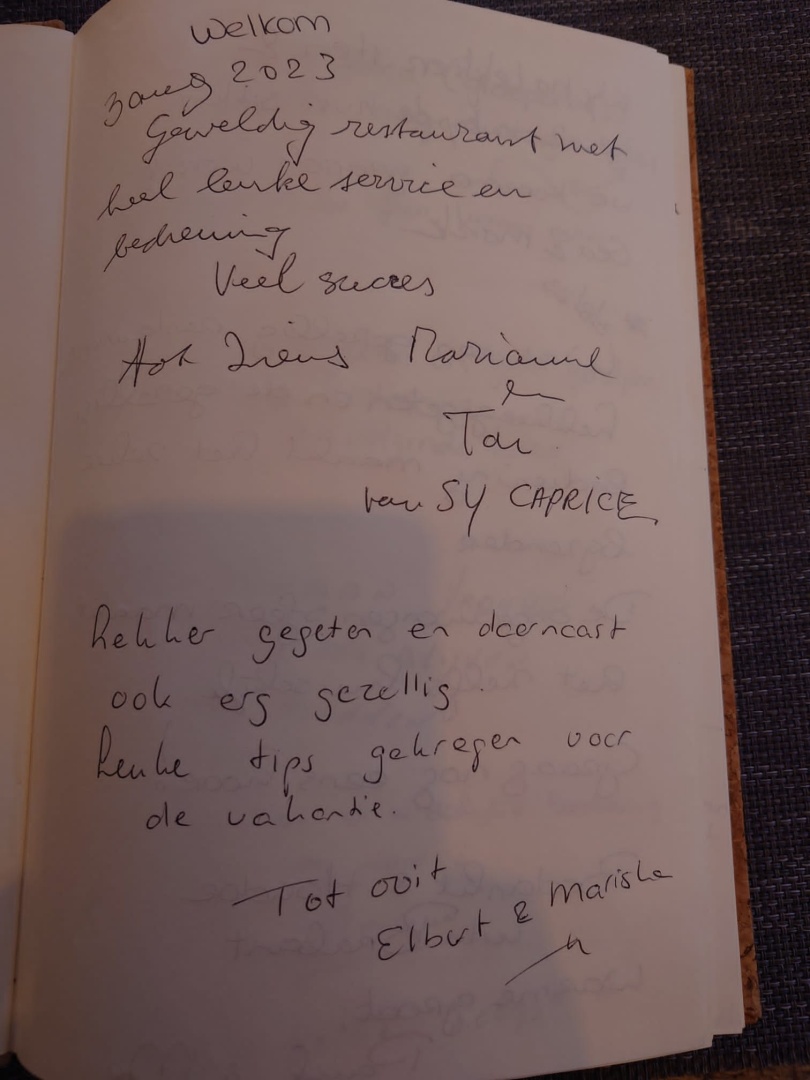 Welkom
3 aug 2023
Geweldig restaurant met
heel leuke service en
bediening
Veel succes
Marianne
en
Ton
van SY CAPRICE
Lekker gegeten en doorncast
ook erg gezellig.
Leuke tips gekregen voor
de vakantie.
Tot ooit
Elbert & Mariska